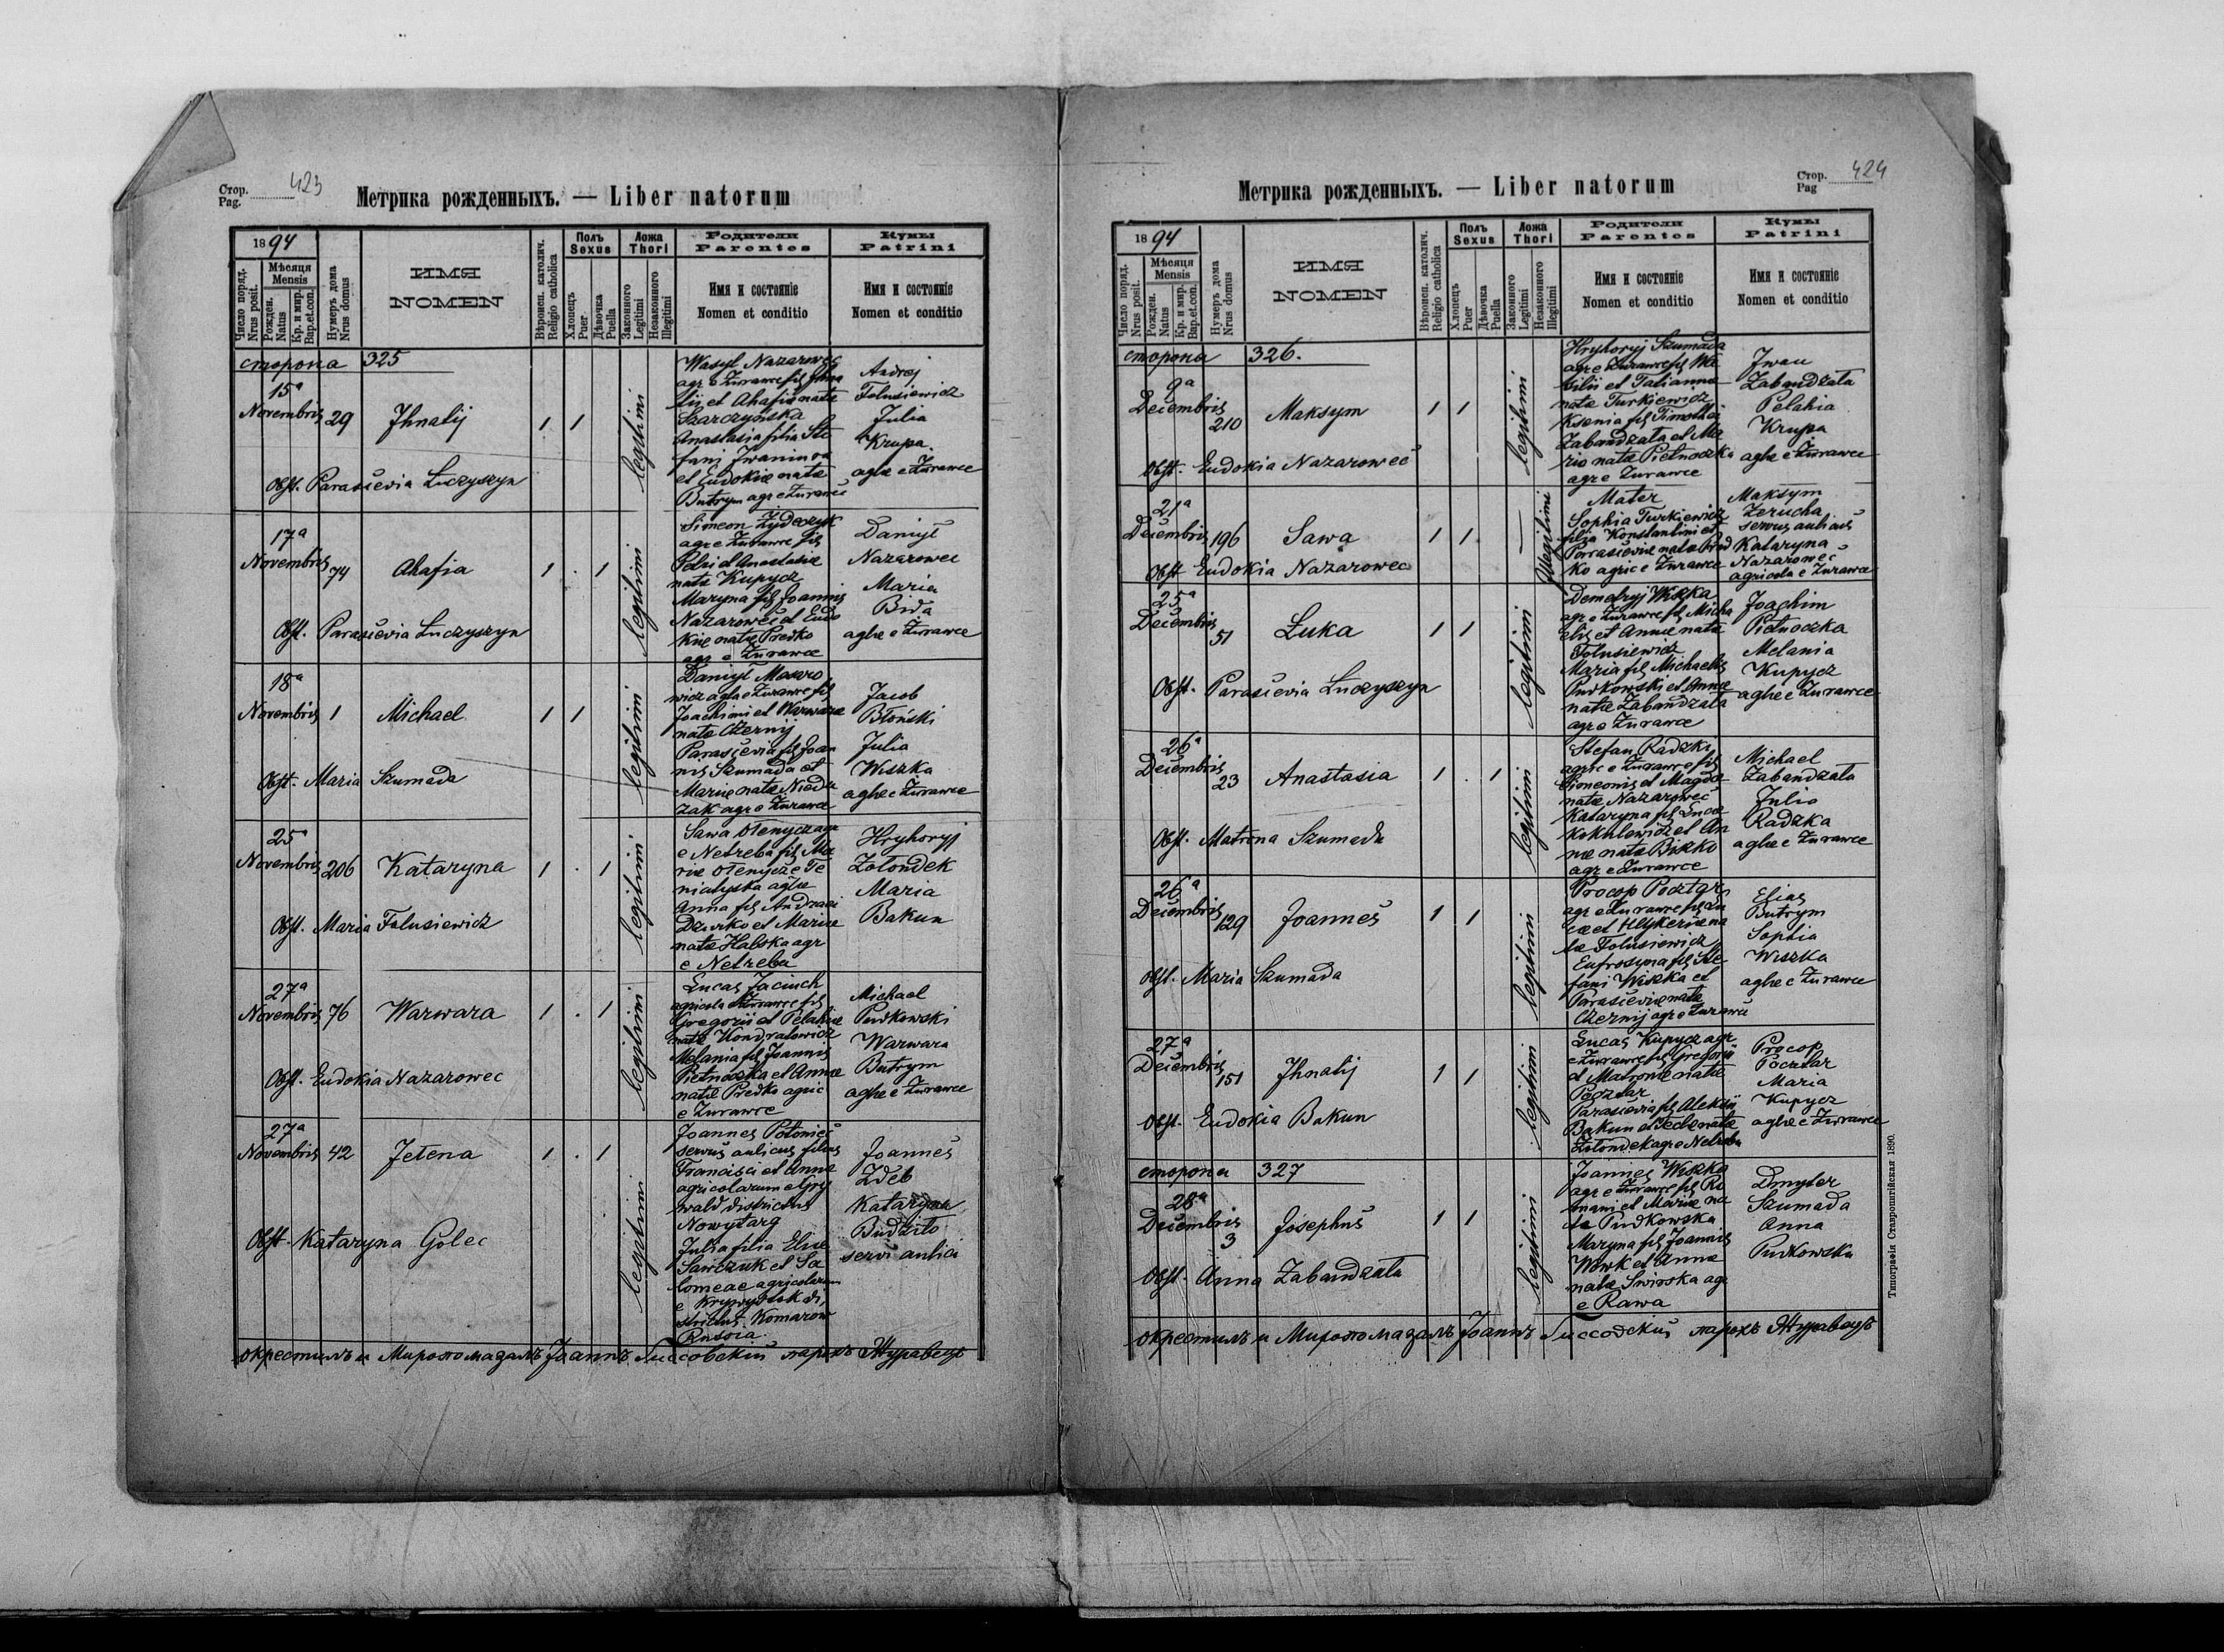 Стор. 423
Pag.
Метрика рожденныхъ. — Liber natorum
1894
Число поряд.
Nrus posit.
Мѣсяця
Mensis
Рожден.
Natus
Кр. и мир.
Bap.et.con.
Нумеръ дома
Nrus domus
ИМЯ
NOMEN
Вѣроисп. католич.
Religio catholica
Полъ
Sexus
Хлопецъ
Puer
Дѣвочка
Puella
Ложа
Thori
Законного
Legitimi
Незаконного
Illegitimi
Родители
Parentes
Имя и состояніе
Nomen et conditio
Кумы
Patrini
Имя и состояніе
Nomen et conditio
сторона 325
15ª
Novembris 29 Jhnatij 1 1
legitimi
Wasyl Nazarowec
agr e Żurawce fil Jhna
tii et Ahafiæ natæ
Szarczyńska
Anastasia filia Ste
fani Iwaninoa
et Eudokiæ natæ
Butrym agr e Żurawce
Andrej
Tolusiewicz
Julia
Krupa
aglæ e Żurawce
Obst. Parasievia Łuczyszyn
17ª
Novembris 74 Ahafia 1 . 1
legitimi
Simeon Żydeczyk
agr e Żurawce fil
Petri et Anastasiæ
natæ Kupycz
Maryna fil Joannis
Nazarowec et Eudo
kiæ natæ Predko
agr e Żurawce
Daniył
Nazarowec
Maria
Bida
aglæ e Żurawce
Obst. Parasievia Łuczyszyn
18ª
Novembris 1 Michael 1 1
legitimi
Daniył
Joachimi et Warwaræ
natæ Czernij
Parasievia fil Joan
nis Szumada et
Mariæ natæ Niedu
zak agr e Żurawce
Jacob
Błoński
Julia
Wiszka
aglæ e Żurawce
Obst. Maria Szumada
25ª
Novembris 206 Kataryna 1 . 1
legitimi
Sawa Ołenycz agr
e Netreba fil Ma
riæ Ołenycz e Te
niatyska aglæ
Anna fil Andreæ
Dziurko et Mariæ
natæ Halska agr
e Netreba
Hryhoryj
Zołondek
Maria
Bakun
Obst. Maria Tolusiewicz
27ª
Novembris 76 Warwara 1 . 1
legitimi
Lucas Jacinch
agricola e Żurawce fil
Gregorii et Pelahiæ
natæ Kondratowicz
Melania fil Joannis
Pietnoczka et Annæ
natæ Predko agric
e Żurawce
Michael
Pudkowski
Warwara
Butrym
aglæ e Żurawce
Obst. Eudokia Nazarowec
27ª
Novembris 42 Jełena 1 . 1
legitimi
Joannes Potoniec
servus aulicus filius
Francisci et Annæ
agricolarum e Gry
wald districtus
Nowytarg
Julia filia Eliæ
Sawczuk et Sa
lomeae agricolarum
e Krywystok di,
strictus Komarow
Russia.
Joannes
Zdeb
Kataryna
Budziło
servi aulici
Obst. Kataryna Golec
окрестилъ и Миропомазалъ Іоаннъ Лиссовскій парохъ Журавецъ
Стор. 424
Pag
Метрика рожденныхъ. — Liber natorum
1894
Число поряд.
Nrus posit.
Мѣсяця
Mensis
Рожден.
Natus
Кр. и мир.
Bap.et.con.
Нумеръ дома
Nrus domus
ИМЯ
NOMEN
Вѣроисп. католич.
Religio catholica
Полъ
Sexus
Хлопецъ
Puer
Дѣвочка
Puella
Ложа
Thori
Законного
Legitimi
Незаконного
Illegitimi
Родители
Parentes
Имя и состояніе
Nomen et conditio
Кумы
Patrini
Имя и состояніе
Nomen et conditio
сторона 326.
9ª
Decembris 210 Maksym 1 1
legitimi
Hryhoryj Szumada
agr e Żurawce fil Wa
silii et Tatianna
natæ Turkiewicz
Ksenia fil Timothei
Zabandzała et Ma
riæ natæ Pietnoczka
agr e Żurawce
Iwan
Zabandzała
Pelahia
Krupa
aglæ e Żurawce
Obst. Eudokia Nazarowec
21ª
Decembris 196 Sawa 1 1
Illegitimi
Mater
Sophia Turkiewicz
filia Konstantini et
Parasieviæ natæ Pred
ko agric e Żurawce
Maksym
Zerucha
servus aulicus
Kataryna
Nazarowec
agricola e Żurawce
Obst Eudokia Nazarowec
25ª
Decembris 51 Łuka 1 1
legitimi
Demetryj Wiszka
agr e Żurawce fil Micha
elis et Annæ natæ
Tolusiewicz
Maria fil Michaelis
Pudkowski et Annæ
natæ Zabandzała
agr e Żurawce
Joachim
Pietnoczka
Melania
Kupycz
aglæ e Żurawce
Obst. Parasievia Łuczyszyn
26ª
Decembris 23 Anastasia 1 . 1
legitimi
Stefan Radzka
agric e Żurawce fil
Simeonis et Magdæ
natæ Nazarowec
Kataryna fil Lucæ
Kokulewicz et An
næ natæ Biszko
agr e Żurawce
Michael
Zabandzała
Julia
Radzka
aglæ e Żurawce
Obst. Matrona Szumada
26ª
Decembris 129 Joannes 1 1
legitimi
Procop Pocztar
agr e Żurawce fil Lu
cæ et Hlykeriæ na
tæ Tolusiewicz
Eufrosyna fil Ste
fani Wiszka et
Parasieviæ natæ
Czernij agr e Żurawce
Elias
Butrym
Sophia
Wiszka
aglæ e Żurawce
Obst. Maria Szumada
27ª
Decembris 151 Jhnatij 1 1
legitimi
Lucas Kupycz agr
e Żurawce fil Gregorii
et Matronæ natæ
Pocztar
Parasievia fil Aleksii
Bakun et Teclæ natæ
Zołondek agr e Netreba
Procop
Pocztar
Maria
Kupycz
aglæ e Żurawce
Obst. Eudokia Bakun
сторона 327
28ª
Decembris 3 Josephus 1 1
legitimi
Joannes Wiszka
agr e Żurawce fil Ro
mani et Mariæ na
tæ Pudkowska
Maryna fil Joannis
Wowk et Annæ
natæ Swirska agr
e Rawa
Dmyter
Szumada
Anna
Pudkowska
Obst. Anna Zabandzała
окрестилъ и Миропомазалъ Іоаннъ Лиссовскій парохъ Журавецъ
Типографія Ставропигійская 1890.